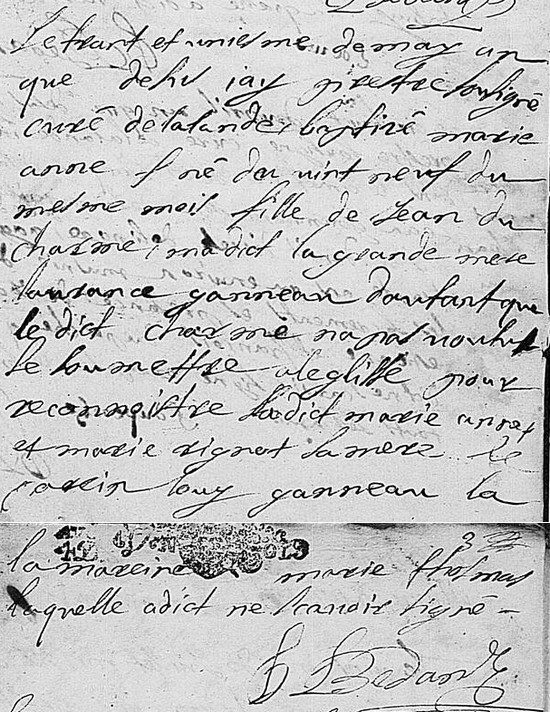 le trant et uniesme de may an
que dehs jay prestre sousigné
curé de lalande, baptizé marie
anne née du vint neuf du
mesme mois fille de Jean du
charme; ma dict la grande mere
laurance ganneau dautant que
le dict charme na pas voulut
se soumettre a leglisse pour
reconnoistre ladict marie anne,
et marie rignot la mere le
parein louy ganneau la
la mareine marie thomas
laquelle a dict ne scavoir signé -
Bedand